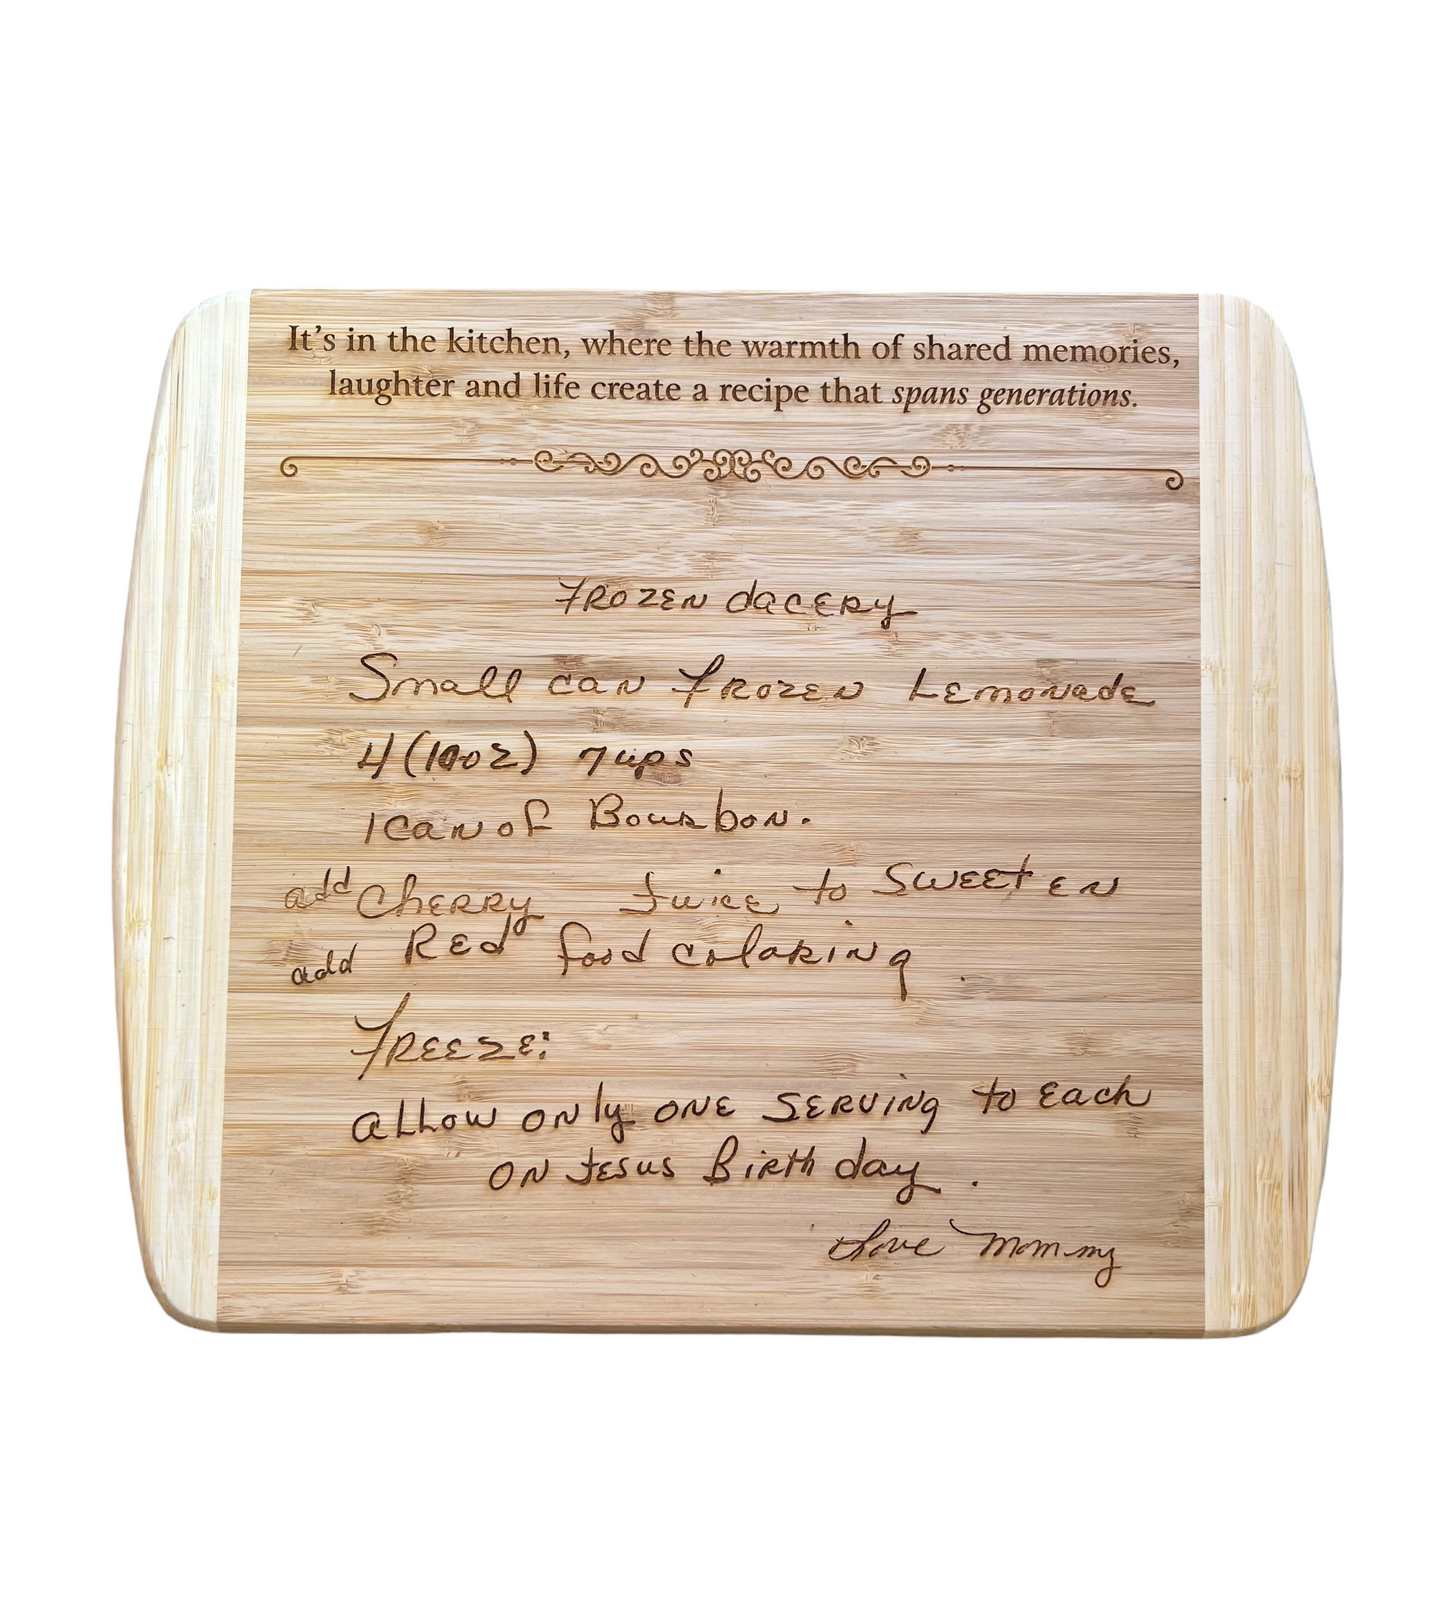 It's in the kitchen, where the warmth of shared memories,
laughter and life create a recipe that spans generations.
FROZEN dacERy
Small can FROZEN LEmonade
4 (10oz) 7ups
1 can of Bourbon.
add ChERRy Juice to SwEEtEN
add REd food coloring.
FREEZE:
aLLow only ONE SERVINg to Each
ON JESUS Birth day.
Love Mommy